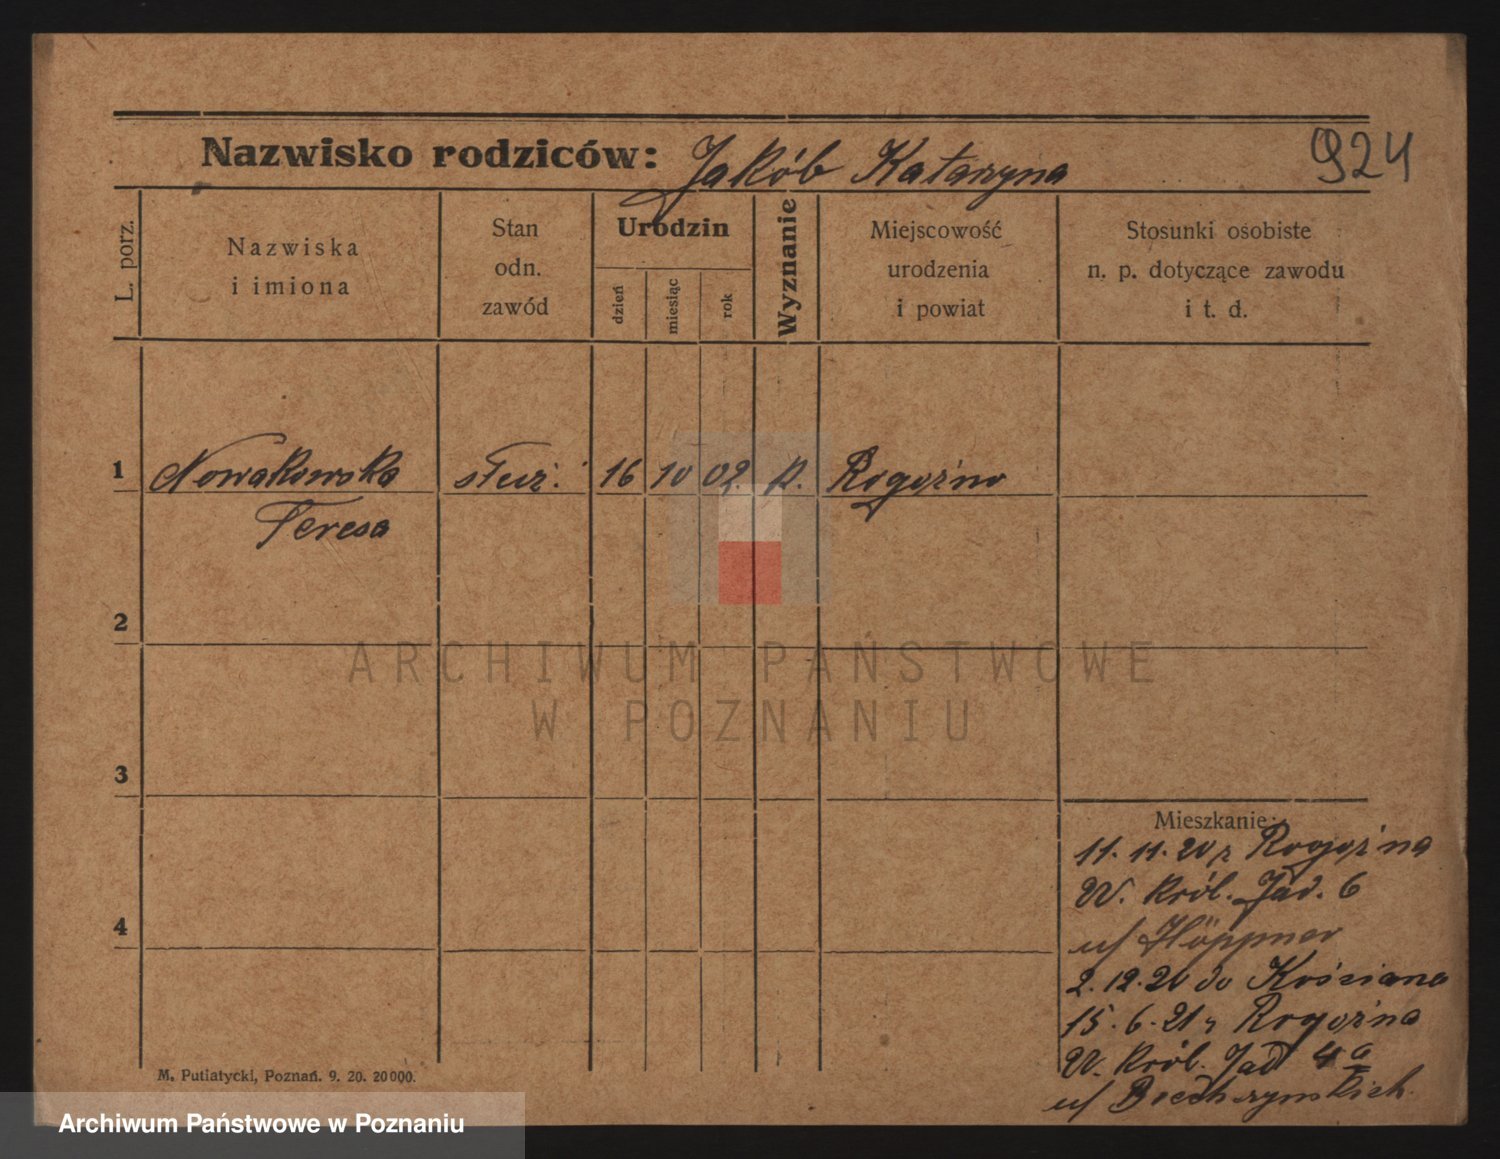 Nazwisko rodziców: Jakób Katarzyna 924
L. porz.
Nazwiska
i imiona
Stan
odn.
zawód
Urodzin
dzień
miesiąc
rok
Wyznanie
Miejscowość
urodzenia
i powiat
Stosunki osobiste
n. p. dotyczące zawodu
i t. d.
1 Nowakowska służ. 16 10 02. k. Rogoźno
Teresa
2
3
4
Mieszkanie:
11.11.20 z Rogoźna
W. Król. Jad. 6
u/ Höppner
2.12.20 do Kościana
15.6.21 z Rogoźna
W. Król. Jad 4a
u/
M. Putiatycki, Poznań. 9. 20. 20000.
ARCHIWUM PAŃSTWOWE
W POZNANIU
Archiwum Państwowe w Poznaniu